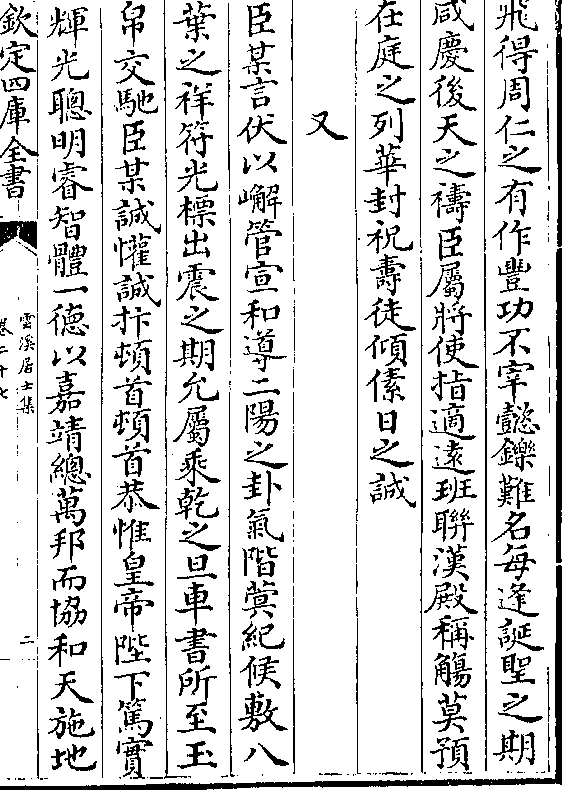 飛得周仁之有作豐功不宰懿鑠難名每逢誕聖之期
咸慶後天之禱臣屬將使指適遠班聯漢殿稱觴莫預
在庭之列華封祝壽徒傾傃日之誠
又
臣某言伏以嶰管宣和導二陽之卦氣階蓂紀候敷八
葉之祥符光標出震之期允屬乘乾之旦車書所至玉
帛交馳臣某誠懽誠抃頓首頓首恭惟皇帝陛下篤實
輝光聰明睿智體一德以嘉靖總萬邦而協和天施地
欽定四庫全書
雲溪居士集
卷二十七
二